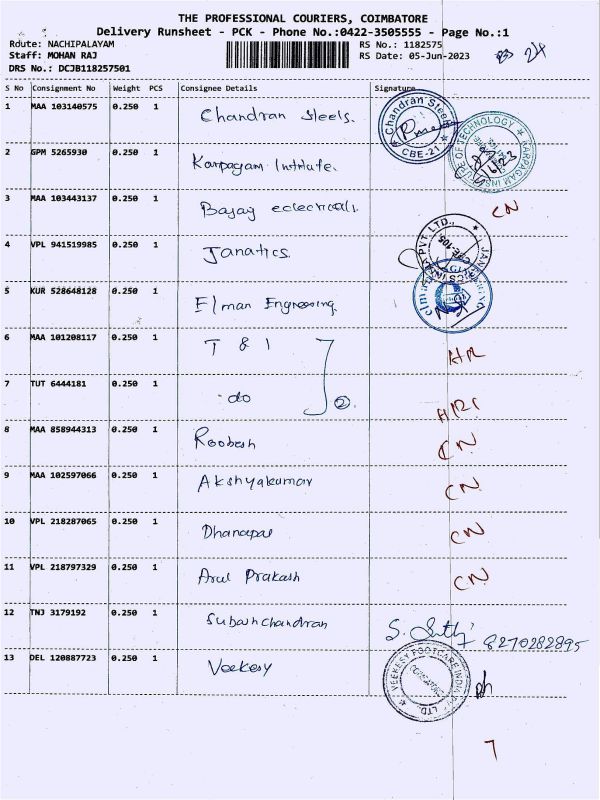 THE PROFESSIONAL COURIERS, COIMBATORE
Delivery Runsheet - PCK - Phone No.:0422-3505555 - Page No.:1
Route: NACHIPALAYAM RS No.: 1182575
Staff: MOHAN RAJ RS Date: 05-Jun-2023
DRS No.: DCJB118257501
S No Consignment No Weight PCS Consignee Details Signature
1 MAA 103140575 0.250 1 Chandran Steels. Chandran Steels CBE-21
2 GPM 5265930 0.250 1 Karpagam Institute. KARPAGAM INSTITUTE OF TECHNOLOGY
3 MAA 103443137 0.250 1 Bajaj eclectricals. CN
4 VPL 941519985 0.250 1 Janatics. PVT LTD., CBE-105.
5 KUR 528648128 0.250 1 Elman Engineering.
6 MAA 101208117 0.250 1 T & I HR
7 TUT 6444181 0.250 1 - do 2
8 MAA 858944313 0.250 1 Roobesh CN
9 MAA 102597066 0.250 1 Akshyakumar CN
10 VPL 218287065 0.250 1 Dhanapal CN
11 VPL 218797329 0.250 1 Arul Prakash CN
12 TNJ 3179192 0.250 1 Subashchandran 8270282895
13 DEL 120887723 0.250 1 Veekesy VEEKESY FOOTCARE INDIA PVT. LTD.
7